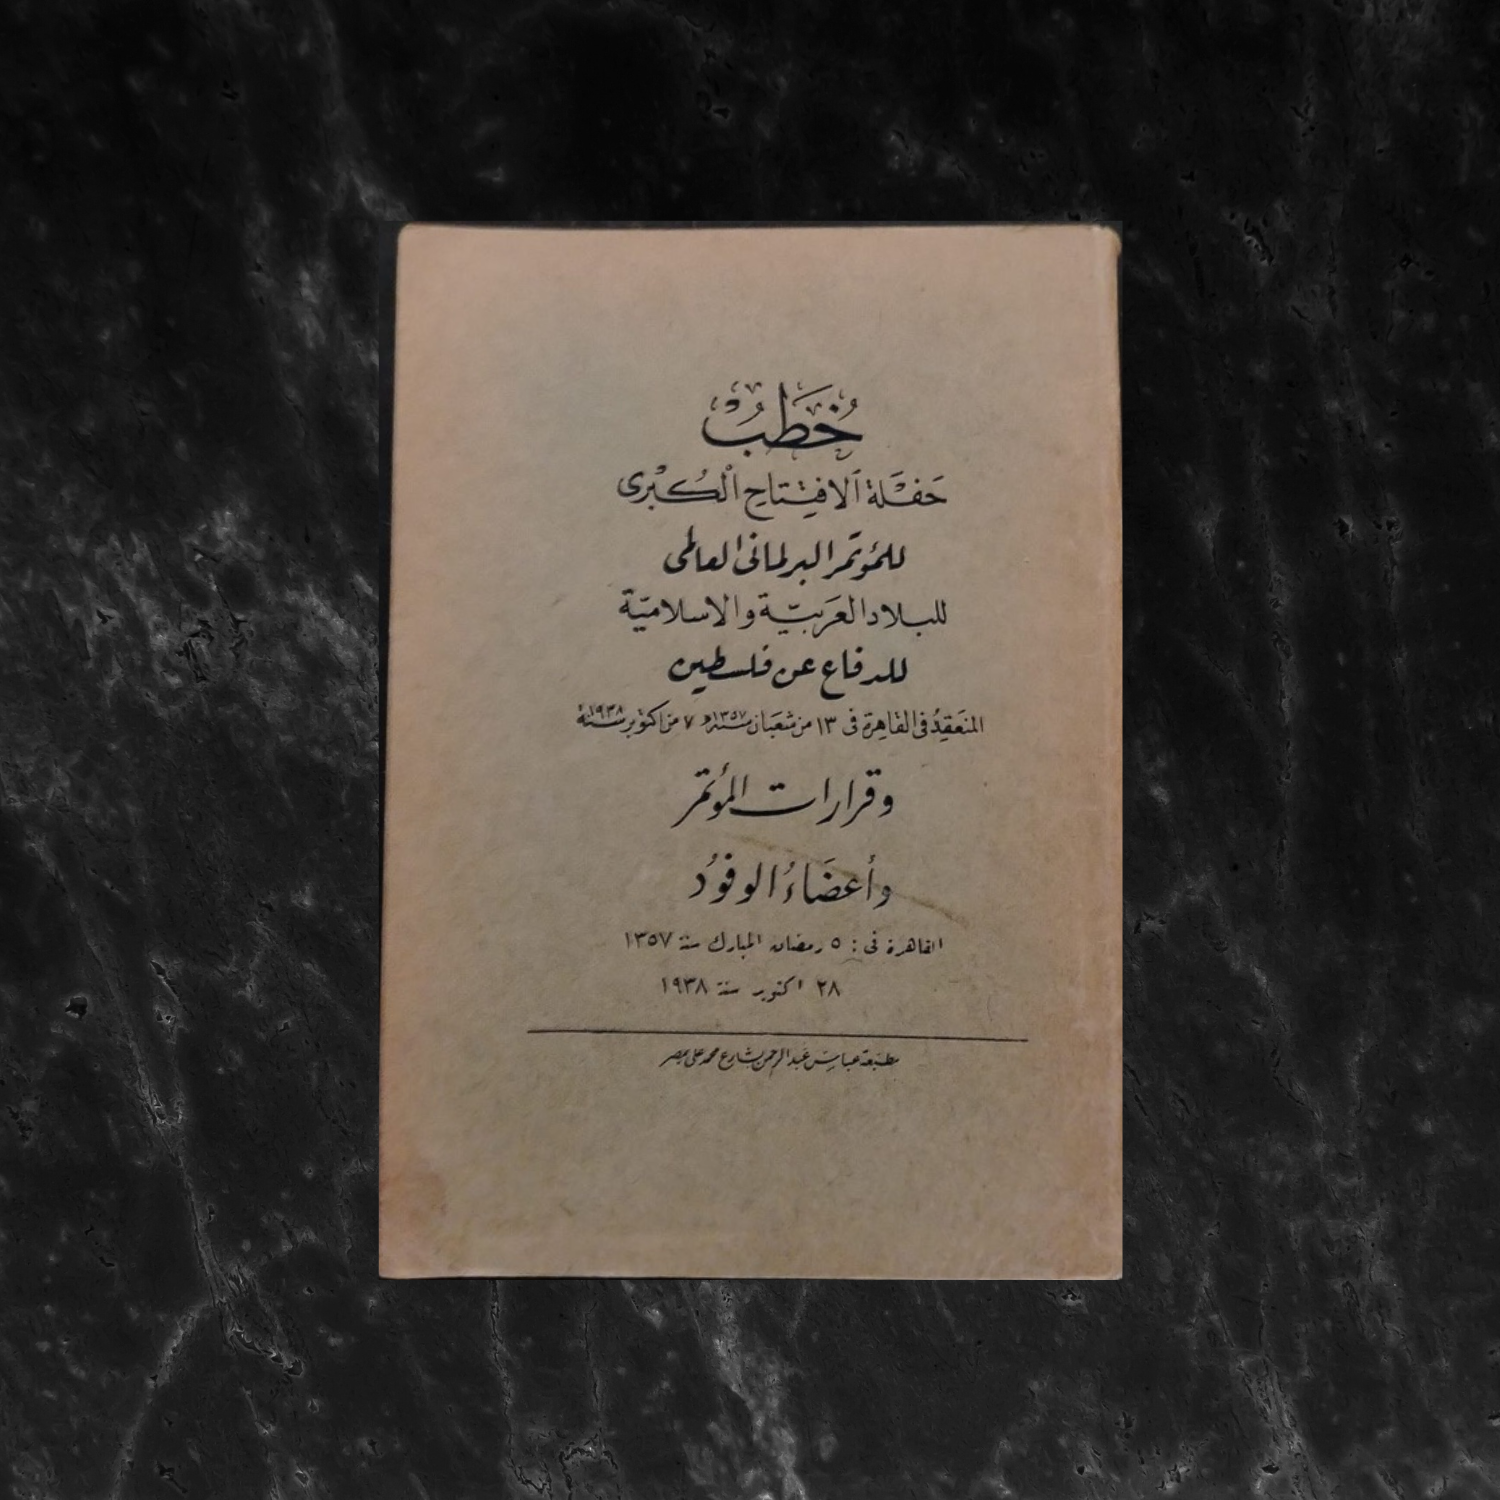 خُطَبُ
حَفْلَة الافِتِتاحِ الْكُبْرى
للمُؤتمَر البرلمانى العالمى
للبلاد العَربيّة والاسلاميّة
للدفاع عن فلسطين
المنعَقِدُ فى القاهِرة فى ١٣ من شعبَان سنة ١٣٥٧ و ٧ من اكتوبر سنة ١٩٣٨
وقرارات المؤتمر
وأعضَاءُ الوفوُد
القاهرة فى : ٥ رمضان المبارك سنة ١٣٥٧
٢٨ اكتوبر سنة ١٩٣٨
مطبَعة عباس عَبد الرحمن بشارع محمد على بمصر